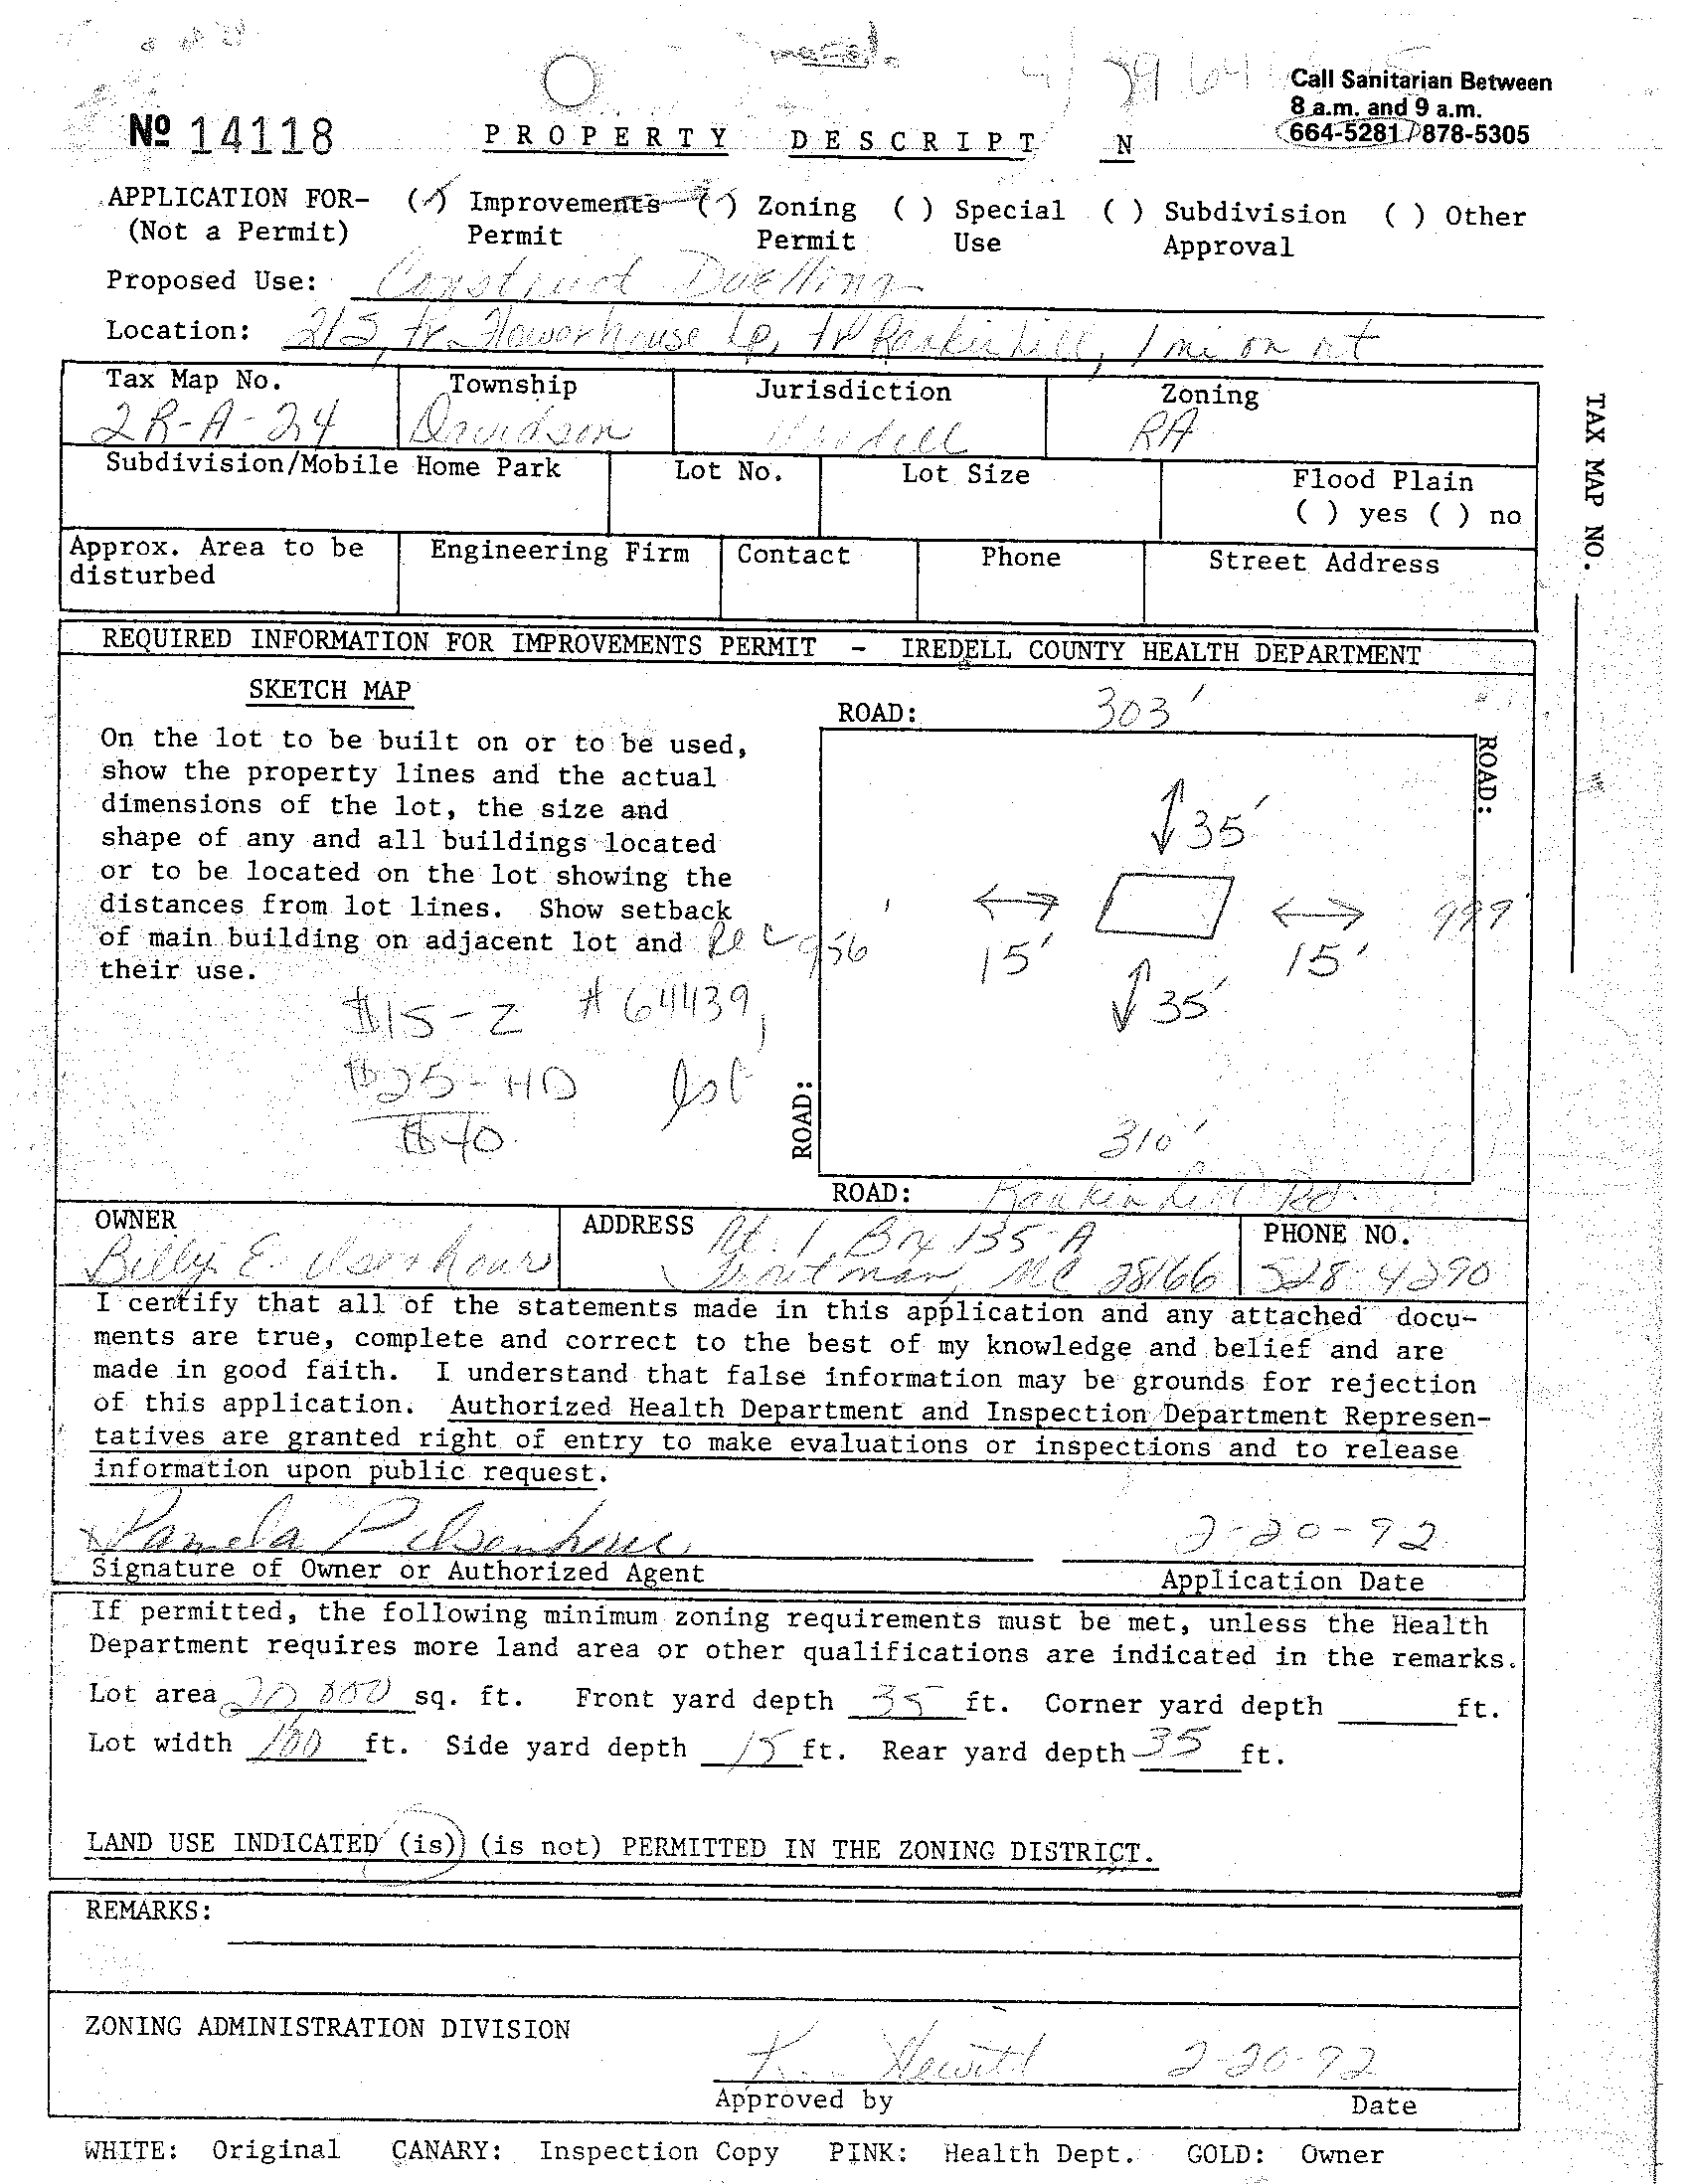 Call Sanitarian Between
8 a.m. and 9 a.m.
664-5281 878-5305
Nº 14118
PROPERTY DESCRIPT N
APPLICATION FOR- (✓) Improvements (✓) Zoning ( ) Special ( ) Subdivision ( ) Other
(Not a Permit) Permit Permit Use Approval
Proposed Use: Construct Dwelling
Location: 21S, tr Flowerhouse Lp, tr Rankin hill, 1 mi on rt
Tax Map No. Township Jurisdiction Zoning
2R-A-24 Davidson Iredell RA
Subdivision/Mobile Home Park Lot No. Lot Size Flood Plain
( ) yes ( ) no
Approx. Area to be disturbed Engineering Firm Contact Phone Street Address
TAX MAP NO.
REQUIRED INFORMATION FOR IMPROVEMENTS PERMIT - IREDELL COUNTY HEALTH DEPARTMENT
SKETCH MAP
On the lot to be built on or to be used,
show the property lines and the actual
dimensions of the lot, the size and
shape of any and all buildings located
or to be located on the lot showing the
distances from lot lines. Show setback
of main building on adjacent lot and
their use.
Rec
#64439
$15-Z
$25-HD
$40
ROAD: 303'
ROAD:
35'
956 15' 15' 999'
35'
310'
ROAD:
ROAD: Rankin Hill Rd.
OWNER ADDRESS PHONE NO.
Billy E. Isenhour
Rt. 1, Box 135-A
Troutman, NC 28166
528-4290
I certify that all of the statements made in this application and any attached docu-
ments are true, complete and correct to the best of my knowledge and belief and are
made in good faith. I understand that false information may be grounds for rejection
of this application. Authorized Health Department and Inspection Department Represen-
tatives are granted right of entry to make evaluations or inspections and to release
information upon public request.
Pamela P Isenhour 2-20-92
Signature of Owner or Authorized Agent Application Date
If permitted, the following minimum zoning requirements must be met, unless the Health
Department requires more land area or other qualifications are indicated in the remarks.
Lot area 20,000 sq. ft. Front yard depth 35 ft. Corner yard depth ft.
Lot width 100 ft. Side yard depth 15 ft. Rear yard depth 35 ft.
LAND USE INDICATED (is) (is not) PERMITTED IN THE ZONING DISTRICT.
REMARKS:
ZONING ADMINISTRATION DIVISION
K. Hewitt 2-20-92
Approved by Date
WHITE: Original CANARY: Inspection Copy PINK: Health Dept. GOLD: Owner